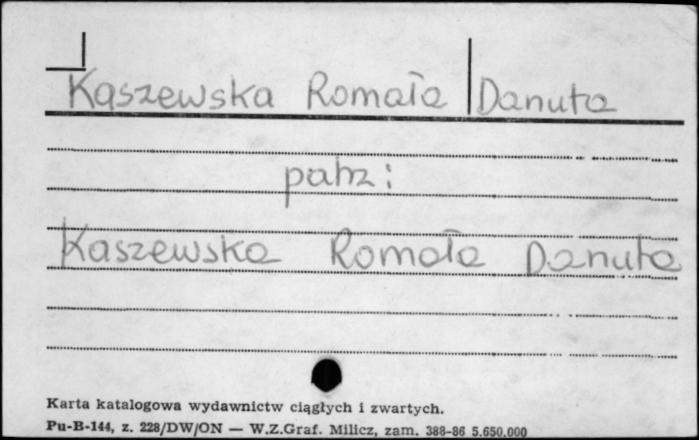 Kąszewska Romała Danuta
patrz:
Kaszewska Romała Danuta
Karta katalogowa wydawnictw ciągłych i zwartych.
Pu-B-144, z. 228/DW/ON — W.Z.Graf. Milicz, zam. 388-86 5.650.000